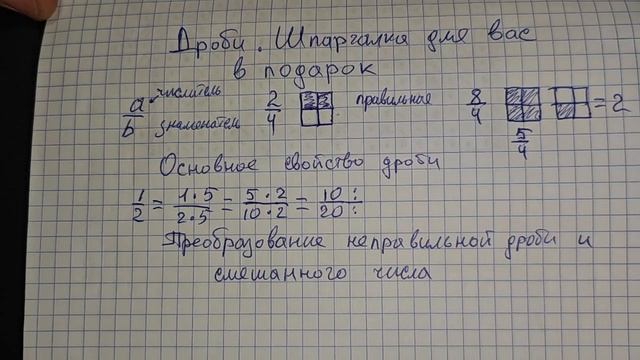 Дроби. Шпаргалка для вас
в подарок
a/b числитель знаменатель 2/4 правильная 8/4 = 2
5/4
Основное свойство дроби
1/2 = 1·5/2·5 = 5·2/10·2 = 10:/20:
Преобразование неправильной дроби и
смешанного числа